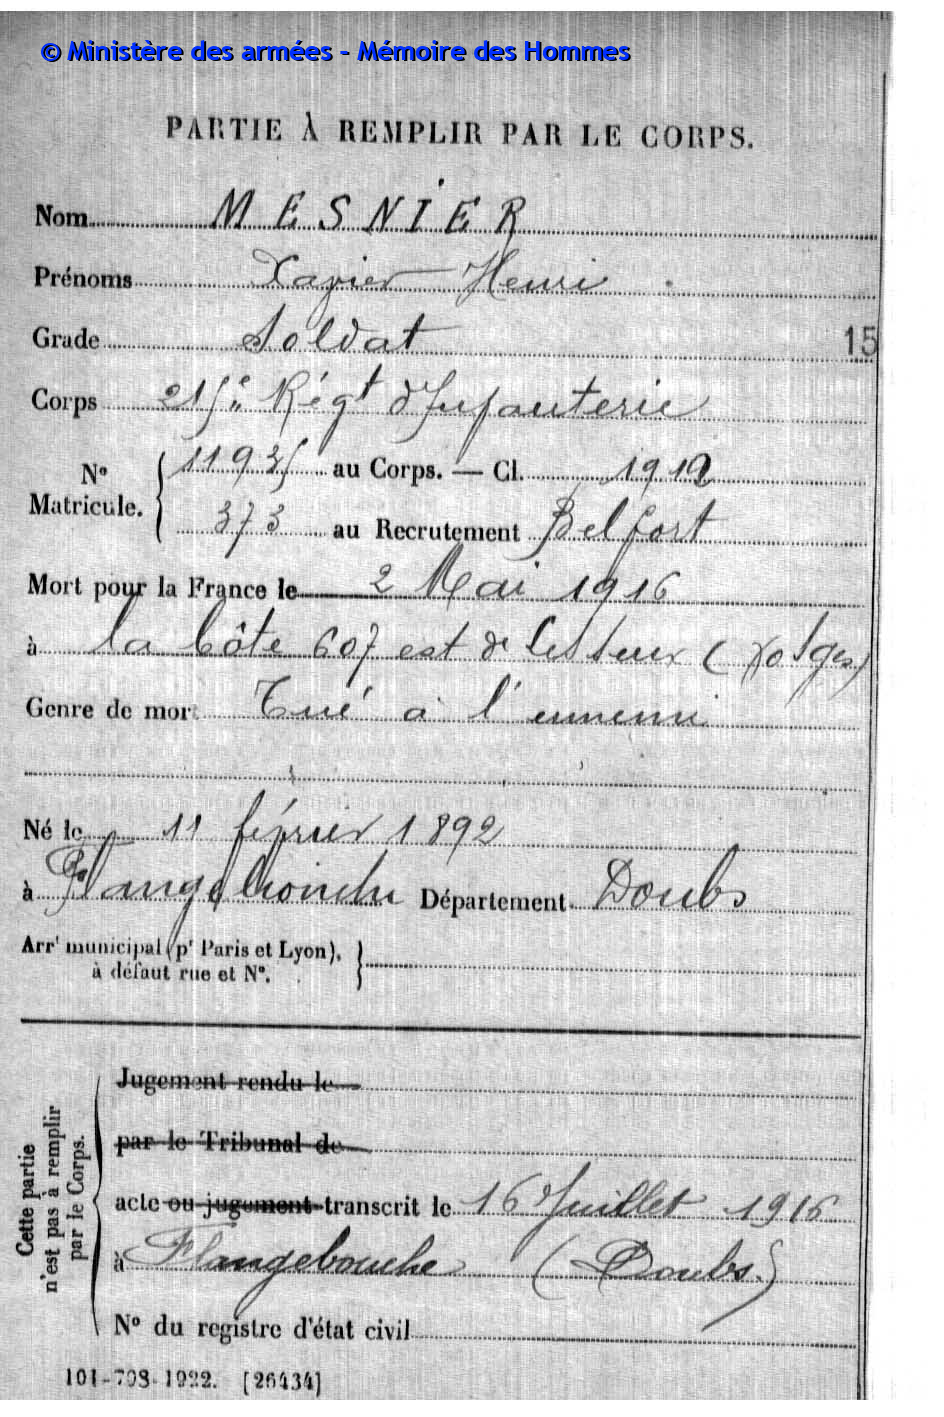 © Ministère des armées - Mémoire des Hommes
PARTIE À REMPLIR PAR LE CORPS.
Nom MESNIER
Prénoms Xavier Henri
Grade Soldat 15
Corps 215e Régt d'Infanterie
No 11935 au Corps. — Cl. 1912
Matricule. 373 au Recrutement Belfort
Mort pour la France le 2 Mai 1916
à la Côte 607 est de Lesseux (Vosges)
Genre de mort Tué à l'ennemi
Né le 11 février 1892
à Flangebouche Département Doubs
Arrt municipal (pr Paris et Lyon),
à défaut rue et No.
Cette partie
n'est pas à remplir
par le Corps.
Jugement rendu le
par le Tribunal de
acte ou jugement transcrit le 16 Juillet 1916
à Flangebouche (Doubs.)
No du registre d'état civil
101-708-1922. [26434]